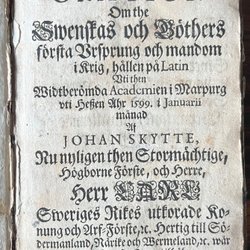 Om the
Swenskas och Göthers
första Ursprung och mandom
i Krig, hållen på Latin
Uti then
Widtberömda Academien i Marpurg
uti Heßen Åhr 1599. i Januarii
månad
Af
JOHAN SKYTTE,
Nu nyligen then Stormächtige,
Högborne Förste, och Herre,
Herr CARL
Sweriges Rikes utkorade Ko-
nung och Arf-Förste, &c. Hertig till Sö-
dermanland, Närike och Wermeland, &c. wår